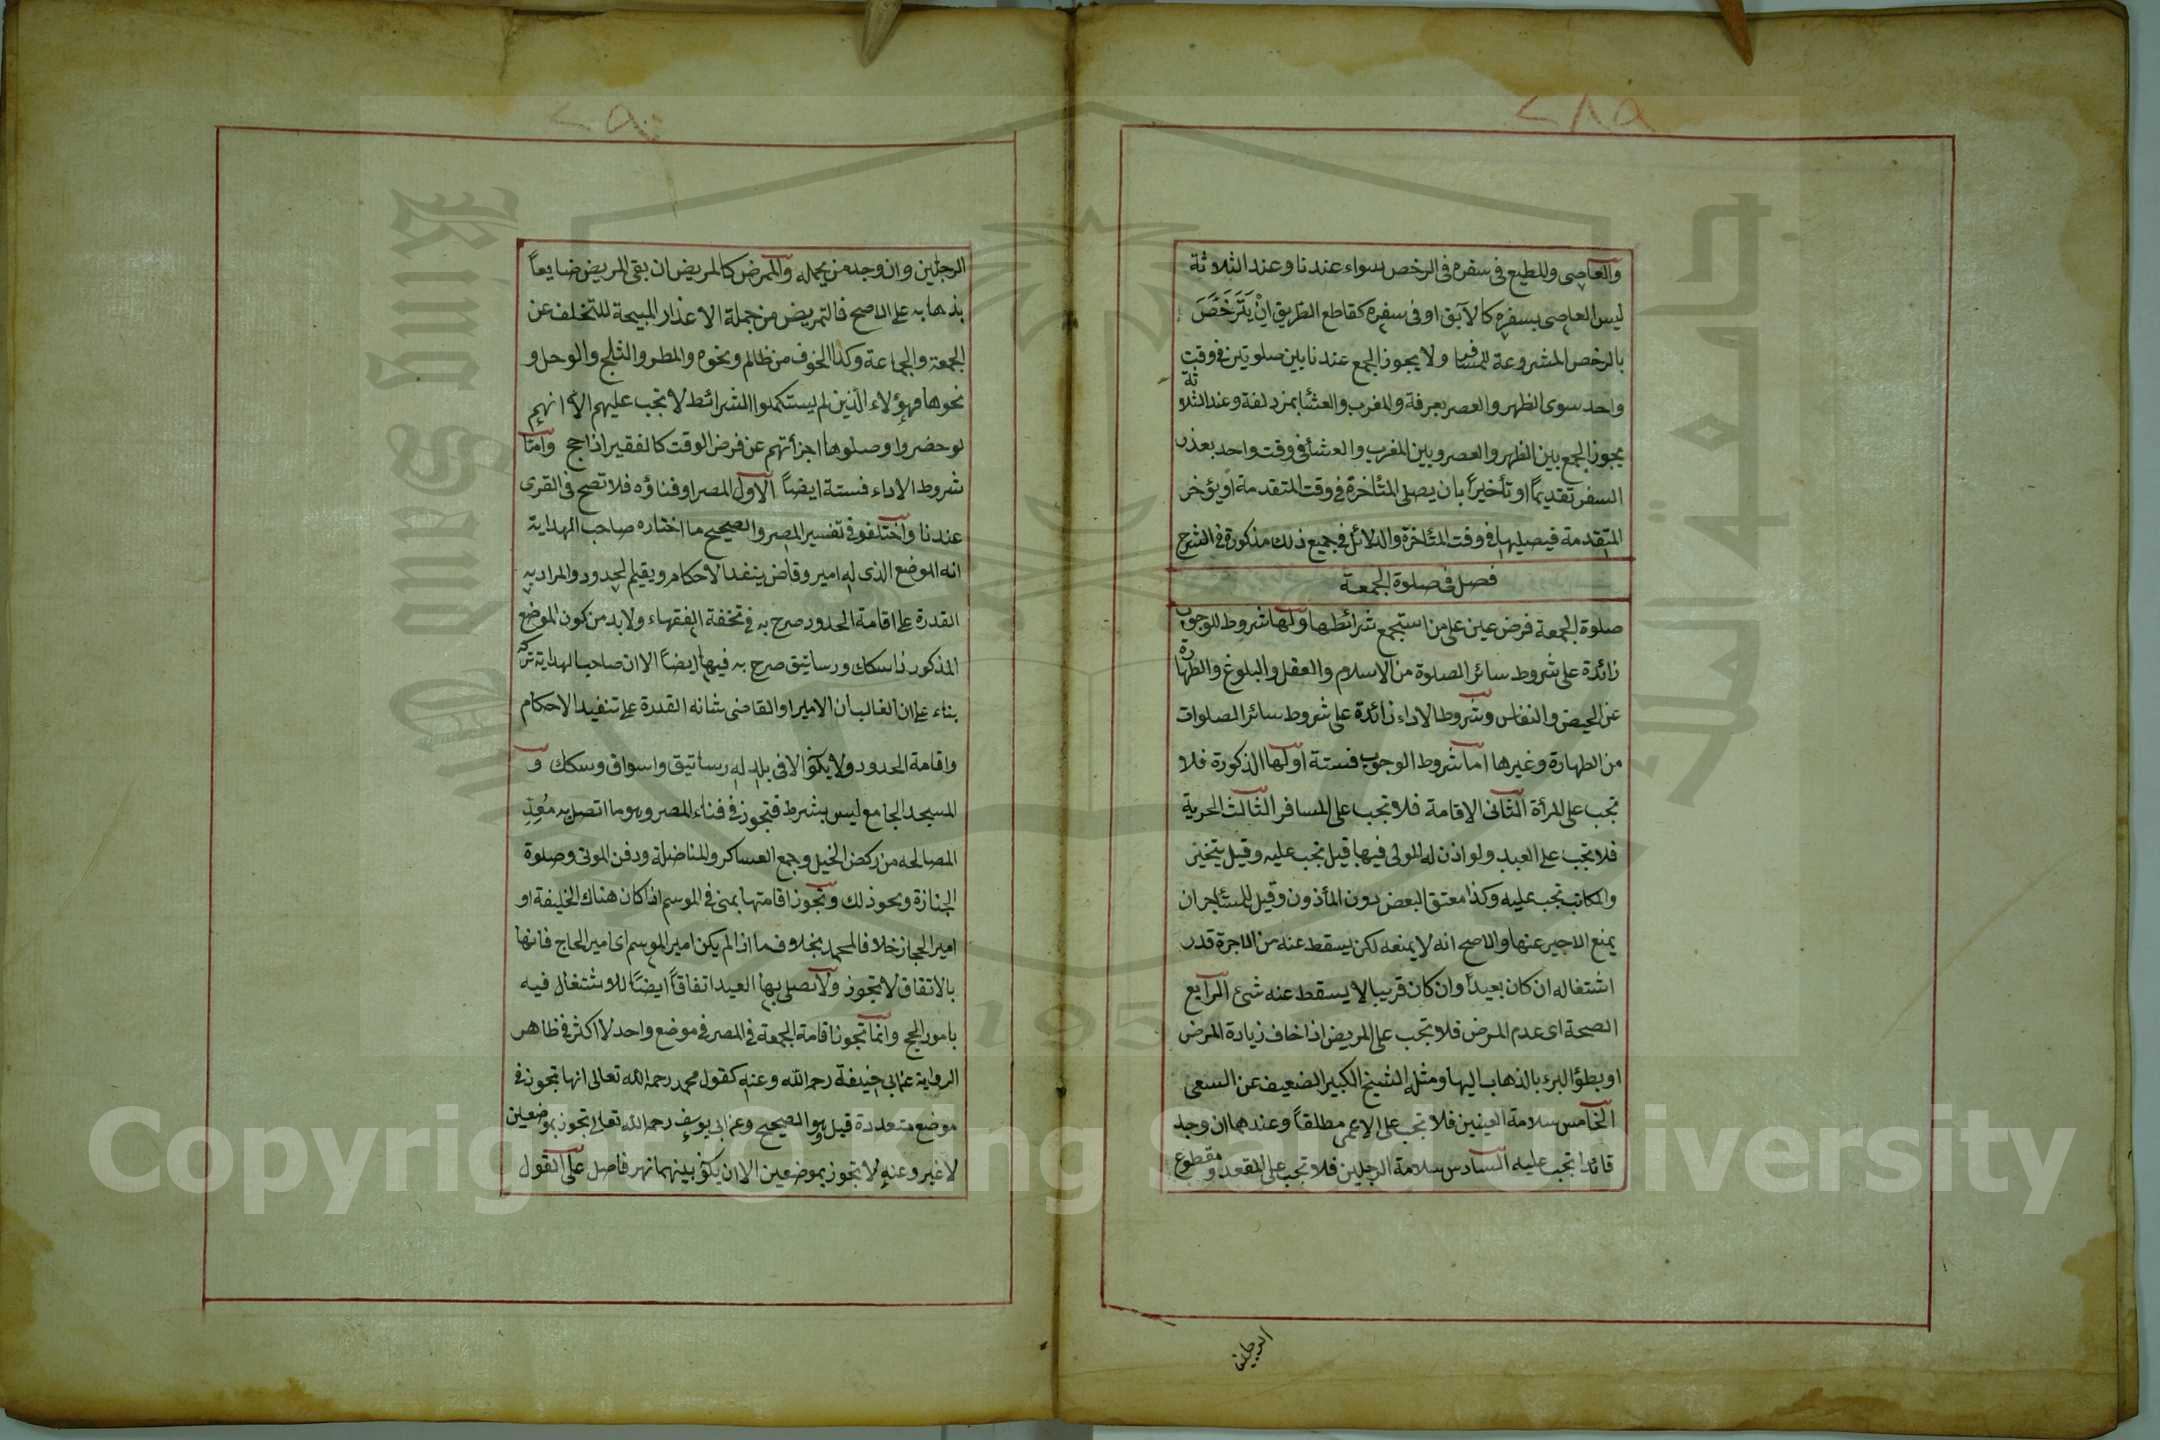 ٢٨٩
والعاصى والمطيع فى سفره فى الرخص سواء عندنا وعند الثلاثة
ليس العاصى بسفره كالآبق او فى سفره كقاطع الطريق انْ يَتَرَخَّصَ
بالرخص المشروعة للمسافر ولا يجوز الجمع عندنا بين صلوتين فى وقت
واحد سوى الظهر والعصر بعرفة والمغرب والعشا بمزدلفة وعند الثلاثة
يجوز الجمع بين الظهر والعصر وبين المغرب والعشأ فى وقت واحد بعذر
السفر تقديمًا او تأخيرًا بان يصلى المتأخرة فى وقت المتقدمة او يؤخر
المتقدمة فيصليها فى وقت المتأخرة والدلائل فى جميع ذلك مذكورة فى الشرح
فصل فى صلوة الجمعة
صلوة الجمعة فرض عين على من استجمع شرائطها ولها شروط للوجوب
زائدة على شروط سائر الصلوة من الاسلام والعقل والبلوغ والطهارة
عن الحيض والنفاس وشروط الاداء زائدة على شروط سائر الصلوات
من الطهارة وغيرها اما شروط الوجوب فستة اولها الذكورة فلا
تجب على المرأة الثانى الاقامة فلا تجب على المسافر الثالث الحرية
فلا تجب على العبد ولو اذن له المولى فيها قيل تجب عليه وقيل يتخير
والمكاتب تجب عليه وكذا معتق البعض دون المأذون وقيل للمستأجر ان
يمنع الاجير عنها والاصح انه لا يمنعه لكن يسقط عنه من الاجرة قدر
اشتغاله ان كان بعيدًا وان كان قريبا لا يسقط عنه شئ الرابع
الصحة اى عدم المرض فلا تجب على المريض اذا خاف زيادة المرض
او بطؤ البرء بالذهاب اليها ومثله الشيخ الكبير الضعيف عن السعى
الخامس سلامة العينين فلا تجب على الاعمى مطلقاً وعندهما ان وجد
قائدا تجب عليه السادس سلامة الرجلين فلا تجب على المقعد ومقطوع
الرجلين
الرجلين وان وجد من يحمله والممرض كالمريض ان بقى المريض ضايعاً
بذهابه على الاصح فالتمريض من جملة الاعذار المبيحة للتخلف عن
الجمعة والجماعة وكذا الخوف من ظالم ونحوه والمطر والثلج والوحل و
نحوها فهؤلاء الذين لم يستكملوا الشرائط لا تجب عليهم الا انهم
لو حضروا وصلوها اجزأتهم عن فرض الوقت كالفقير اذا حج وامّا
شروط الاداء فستة ايضاً الاول المصر او فناؤه فلا تصح فى القرى
عندنا واختلفو فى تفسير المصر والصحيح ما اختاره صاحب الهداية
انه الموضع الذى له امير وقاض ينفذ الاحكام ويقيم الحدود والمراد به
القدرة على اقامة الحدود صرح به فى تحفة الفقهاء ولا بد من كون الموضع
المذكور ذا سكك ورساتيق صرح به فيها ايضا الا ان صاحب الهداية تركه
بناء على ان الغالب ان الامير او القاضى شانه القدرة على تنفيذ الاحكام
واقامة الحدود ولا يكون الا فى بلد له رساتيق واسواق وسكك و
المسجد الجامع ليس بشرط فتجوز فى فناء المصر وهو ما اتصل به مُعِدّ
لمصالحه من ركض الخيل وجمع العساكر والمناضلة ودفن الموتى وصلوة
الجنازة ونحو ذلك وتجوز اقامتها بمنى فى الموسم اذا كان هناك الخليفة او
امير الحجاز خلافا لمحمد بخلاف ما اذا لم يكن امير الموسم اى امير الحاج فانها
بالاتفاق لا تجوز ولا تصلى بها العيد اتفاقاً ايضًا للاشتغال فيه
بامور الحج وانما تجوز اقامة الجمعة فى المصر فى موضع واحد لا اكثر فى ظاهر
الرواية عن ابى حنيفة رحمه الله وعنه كقول محمد رحمه الله تعالى انها تجوز فى
موضع متعددة قيل هو الصحيح وعن ابى يوسف رحمه الله تعالى تجوز بموضعين
لا غير وعنه لا تجوز بموضعين الا ان يكون بينهما نهر فاصل على القول
Copyright © King Saud University
King Saud University
جامعة الملك سعود
195